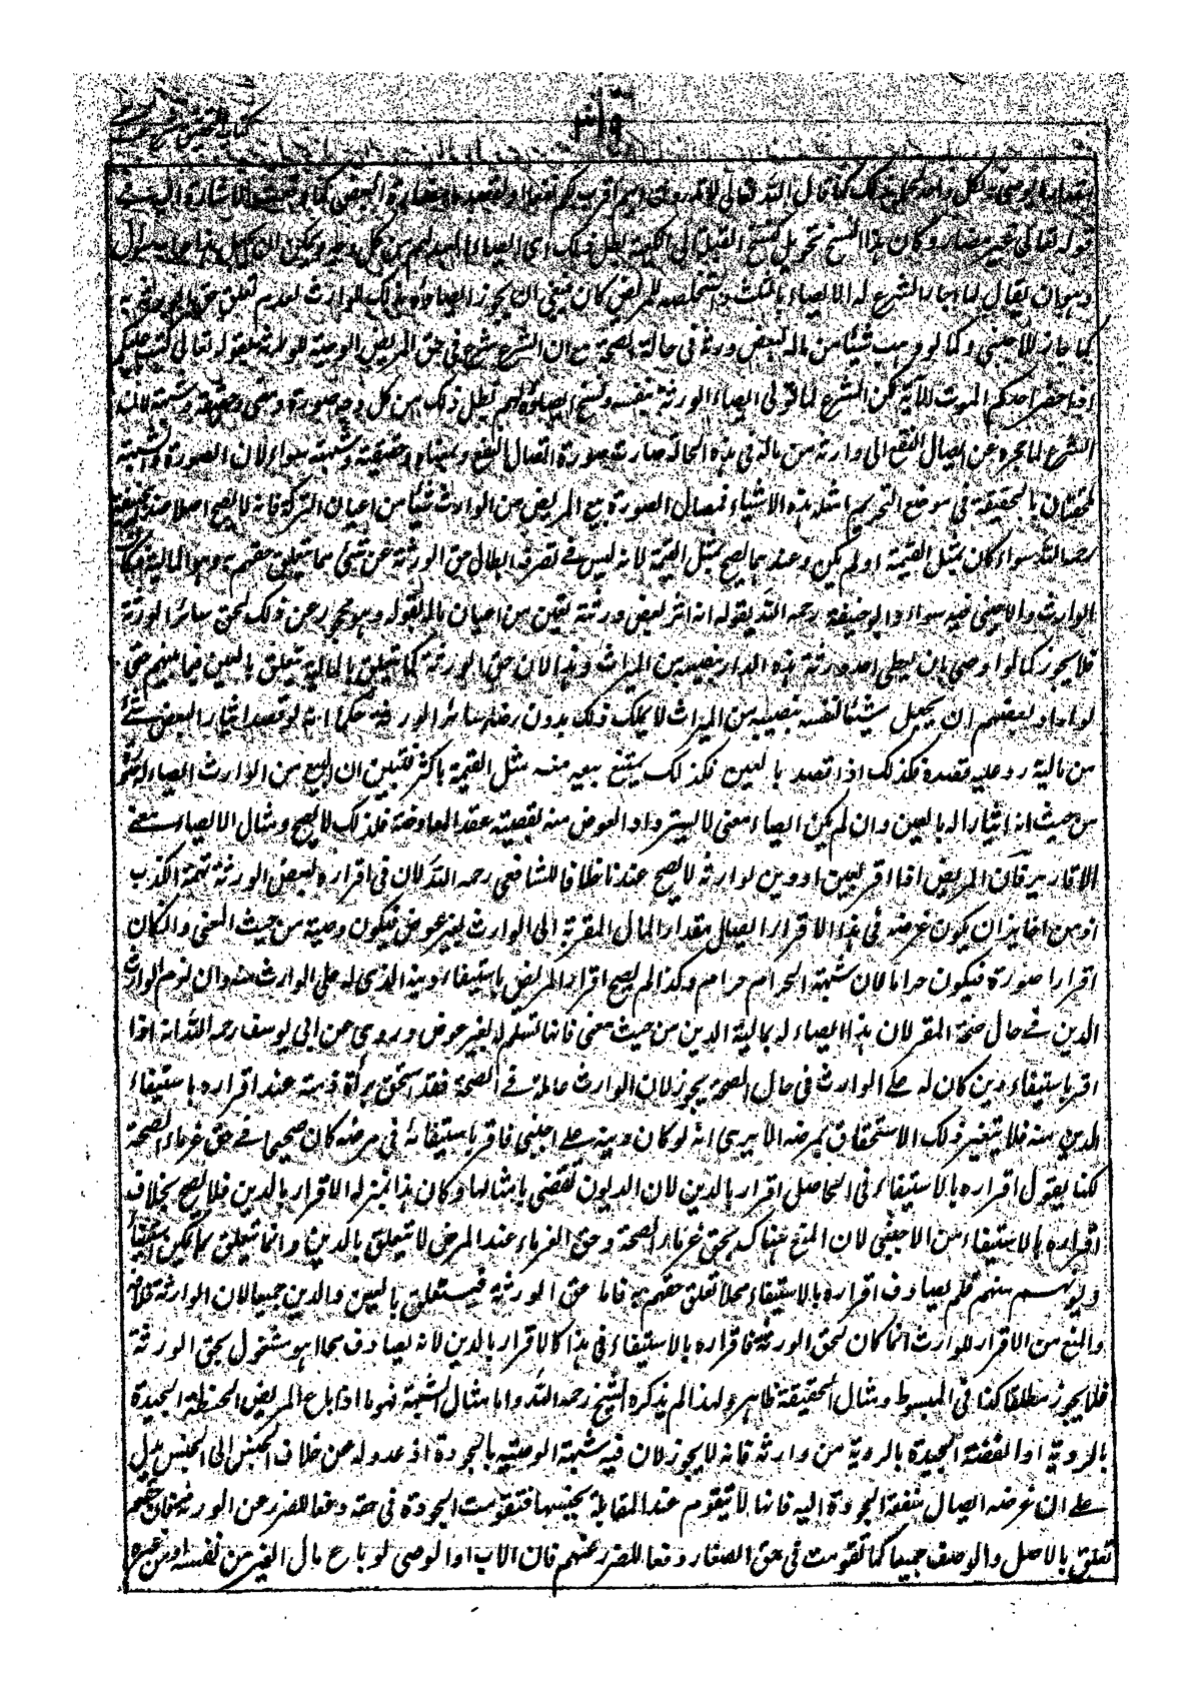 بمقدار الوصية لكل واحد بحاله لك كما قال الله تعالى لا تدرون ايهم اقرب لكم نفعا
قوله تعالى غير مضار وكان هذا النسخ تحويل كنسخ القبلة الى الكعبة
وهو ان يقال لما اجاز الشرع له الايصاء بالثلث واستخلصه للمريض كان ينبغي ان يجوز ايصاؤه بذلك للوارث لعدم تعلق حق الورثة به
كما جاز للاجنبي وكما لو وهب شيئا من ماله لبعض ورثته في حالة الصحة مع ان الشرع شرع في حق المريض الوصية للوارث بقوله تعالى كتب عليكم
اذا حضر احدكم الموت الآية لكن الشرع لما تولى ايصاء الورثة بنفسه ونسخ ايصاؤه لهم بطل ذلك من كل وجه صورة ومعنى وحقيقة وشبهة لان
الشرع لما حجره عن ايصال النفع الى وارثه من ماله في هذه الحالة صارت صورة ايصال النفع ومعناه وحقيقته وشبهته سواء لان الصورة والشبهة
ملحقتان بالحقيقة في موضع التحريم امثلة هذه الاشياء فمثال الصورة بيع المريض من الوارث شيئا من اعيان التركة فانه لا يصح اصلا عند ابي حنيفة
رحمه الله سواء كان بمثل القيمة او لم يكن وعندهما يصح بمثل القيمة لانه ليس في تصرفه ابطال حق الورثة عن شيء مما يتعلق حقهم به وهو المالية فكان
الوارث والاجنبي فيه سواء وابو حنيفة رحمه الله يقول انه آثر بعض ورثته بعين من اعيان ماله بقوله وهو محجور عن ذلك لحق سائر الورثة
فلا يجوز كما لو اوصى بان يعطى احد ورثته هذه الدار بنصيبه من الميراث وهذا لان حق الورثة كما يتعلق بالمالية يتعلق بالعين فيما بينهم حتى
لو اراد بعضهم ان يجعل شيئا لنفسه بنصيبه من الميراث لا يملك ذلك بدون رضا سائر الورثة فكما انه لو قصد ايثار البعض بشيء
من ماليته رد عليه قصده فكذلك اذا قصد بالعين فكذلك يمتنع بيعه منه بمثل القيمة او اكثر فتبين ان البيع من الوارث ايصاء له صورة
من حيث انه ايثار له بالعين وان لم يكن ايصاء معنى لاسترداد العوض منه بقضية عقد المعاوضة فلذلك لا يصح ومثال الايصاء معنى
الاقارير فان المريض اذا اقر بعين او دين لوارثه لا يصح عندنا خلافا للشافعي رحمه الله لان في اقراره لبعض الورثة تهمة الكذب
اذ من الجائز ان يكون غرضه في هذا الاقرار ايصال مقدار المال المقر به الى الوارث بغير عوض فيكون وصية من حيث المعنى وان كان
اقرارا صورة فيكون حراما لان شبهة الحرام حرام وكذا لم يصح اقرار المريض باستيفاء دينه الذي له على الوارث منه وان لزم الوارث
الدين في حال صحة المقر لان هذا ايصاء له بمالية الدين من حيث معنى فانها تسلم له بغير عوض وروي عن ابي يوسف رحمه الله انه اذا
اقر باستيفاء دين كان له على الوارث في حال الصحة يجوز لان الوارث عامله في الصحة فقد استحق براءة ذمته عند اقراره باستيفاء
الدين منه فلا يتغير ذلك الاستحقاق بمرضه الا يرى انه لو كان دينه على اجنبي فاقر باستيفائه في مرضه كان صحيحا في حق غرماء الصحة
لكنا نقول اقراره بالاستيفاء في الحاصل اقرار بالدين لان الديون تقضى بامثالها وكان هذا بمنزلة الاقرار بالدين فلا يصح بخلاف
اقراره بالاستيفاء من الاجنبي لان المنع هناك لحق غرماء الصحة وحق الغرماء عند المرض لا يتعلق بالدين وانما يتعلق بما يمكن استيفاء
ديونهم منه فلم يصادف اقراره بالاستيفاء محلا تعلق حقهم به فاما حق الورثة فيتعلق بالعين والدين جميعا لان الوارثة خلافة
والمنع من الاقرار للوارث انما كان لحق الورثة فاقراره بالاستيفاء في هذا كالاقرار بالدين لانه يصادف محلا هو مشغول بحق الورثة
فلا يجوز مطلقا كذا في المبسوط ومثال الحقيقة ظاهر ولهذا لم يذكره الشيخ رحمه الله واما مثال الشبهة فهو ما اذا باع المريض الحنطة الجيدة
بالردية او الفضة الجيدة بالردية من وارثه فانه لا يجوز لان فيه شبهة الوصية بالجودة اذ عدوله عن خلاف الجنس الى الجنس يدل
على ان غرضه ايصال منفعة الجودة اليه فانها لا تتقوم عند المقابلة بجنسها فتقومت الجودة في حقه دفعا للضرر عن الورثة فان حقهم
تعلق بالاصل والوصف جميعا كما تقومت في حق الصغار دفعا للضرر عنهم فان الاب او الوصي لو باع مال الصغير من نفسه او من غيره